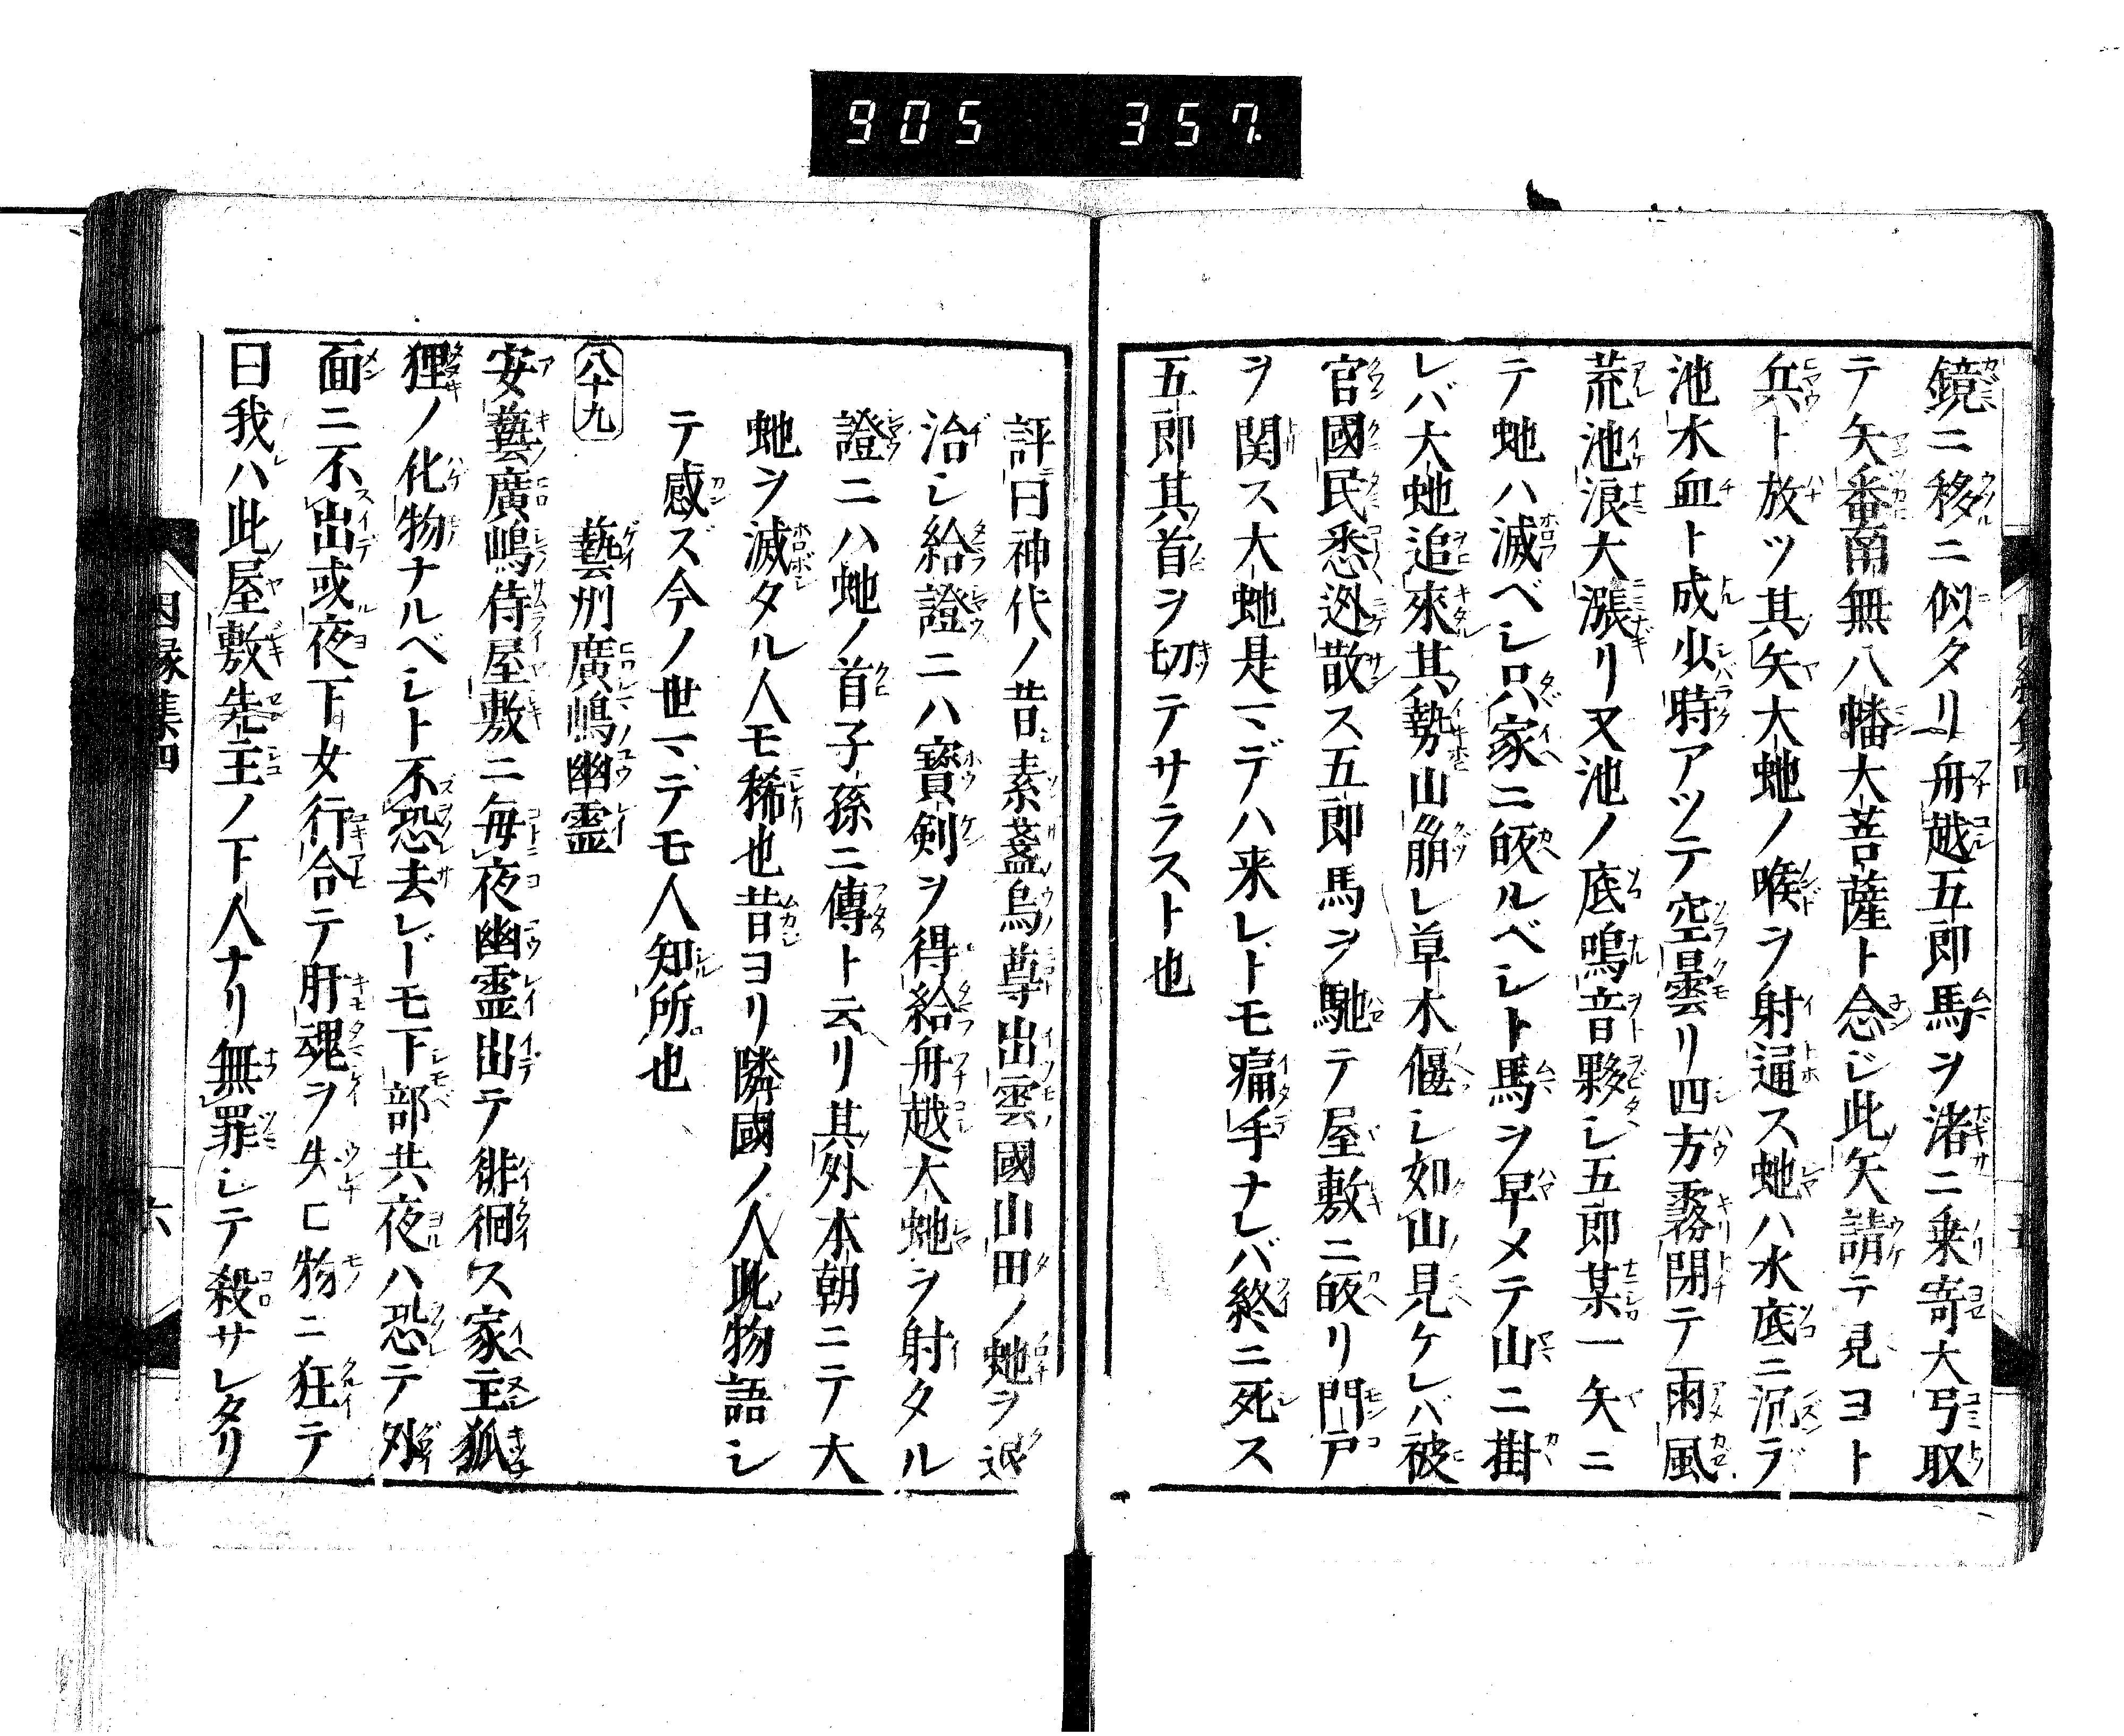 905 357
鏡ニ移ニ似タリ舟越五郎馬ヲ渚ニ乗寄大弓取
テ矢番南無八幡大菩薩ト念ジ此矢請テ見ヨト
兵ト放ツ其矢大虵ノ喉ヲ射逼ス虵ハ水底ニ沉デ
池水血ト成少時アツテ空曇リ四方霧閉テ雨風
荒池浪大漲リ又池ノ底鳴音夥シ五郎某一矢ニ
テ虵ハ滅ベシ只家ニ皈ルベシト馬ヲ早メテ山ニ掛
レバ大虵追來其勢山崩レ草木偃シ如山見ケレバ被
官國民悉迯散ス五郎馬ヲ馳テ屋敷ニ皈リ門戸
ヲ関ス大虵是マデハ来レトモ痛手ナレバ終ニ死ス
五郎其首ヲ切テサラスト也
評曰神代ノ昔素盞烏尊出雲國山田ノ虵ヲ退
治シ給證ニハ寳剣ヲ得給舟越大虵ヲ射タル
證ニハ虵ノ首子孫ニ傳ト云リ其外本朝ニテ大
虵ヲ滅タル人モ稀也昔ヨリ隣國ノ人此物語シ
テ感ズ今ノ世マテモ人知所也
八十九 藝州廣嶋幽霊
安藝廣嶋侍屋敷ニ毎夜幽霊出テ徘徊ス家主狐
狸ノ化物ナルベシト不恐去レドモ下部共夜ハ恐テ外
面ニ不出或夜下女行合テ肝魂ヲ失ヒ物ニ狂テ
曰我ハ此屋敷先主ノ下人ナリ無罪シテ殺サレタリ
因縁集四
六